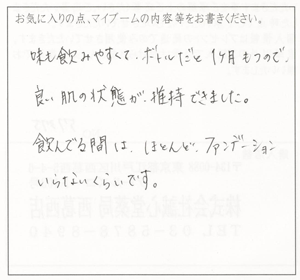 お気に入りの点、マイブームの内容等をお書きください。
味も飲みやすくて、ボトルだと1ヶ月もつので、
良い肌の状態が、維持できました。
飲んでる間は、ほとんど、ファンデーション
いらないくらいです。